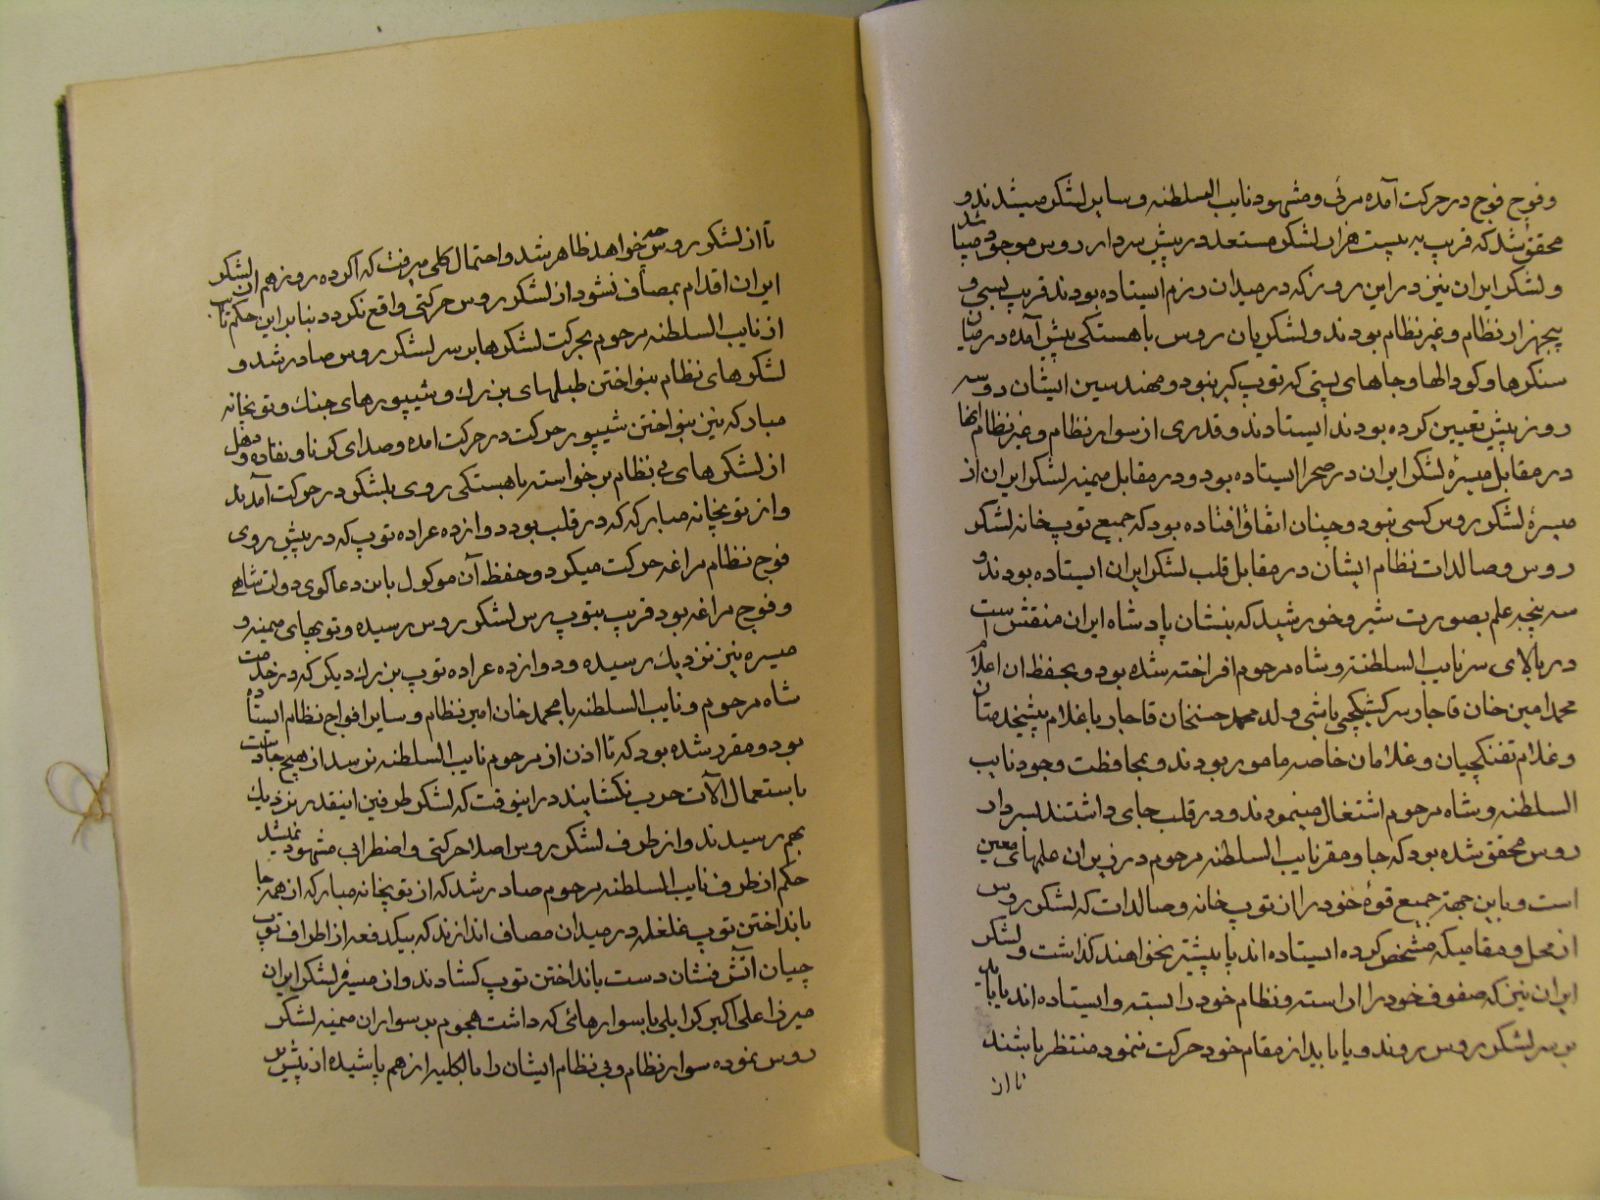 و فوج فوج در حرکت آمده مرئی و مشهود نایب السلطنه و سایر لشکر میشدند و
محقق شد که قریب به بیست هزار لشکر مستعد در پیش سردار روس موجود میباشد
و لشکر ایران نیز در این روز که در میدان رزم ایستاده بودند قریب بسی و
پنجهزار نظام و غیر نظام بودند و لشکریان روس باهستکی پیش آمده در میان
سنکرها و کودالها و جاهای پستی که توپ کیر بنود و مهندسین ایشان دو سه
روز پیش تعیین کرده بودند ایستادند و قدری از سوار نظام و غیر نظام انها
در مقابل میسرۀ لشکر ایران در صحرا ایستاده بود و در مقابل میمنه لشکر ایران از
میسرۀ لشکر روس کسی نبود و چنان اتفاق افتاده بود که جمیع توپ خانه لشکر
روس و صالدات نظام ایشان در مقابل قلب لشکر ایران ایستاده بودند و
سه پنجه علم بصورت شیر و خورشید که بنشان پادشاه ایران منقش است
در بالای سر نایب السلطنه و شاه مرحوم افراخته شده بود و بحفظ ان اعلام
محمد امین خان قاجار سر کشیکچی باشی ولد محمد حسنخان قاجار با غلام پیشخدمتان
و غلام تفنکچیان و غلامان خاصه مامور بودند و بمحافظت وجود نایب
السلطنه و شاه مرحوم اشتغال مینمودند و در قلب جای داشتند بسردار
روس محقق شده بود که جا و مقر نایب السلطنه مرحوم در زیر ان علمهای معین
است و باین جهة جمیع قوۀ خود را از توپ خانه و صالدات که لشکر روس
از محل و مقامیکه مشخص کرده ایستاده اند پا پیشتر نخواهند کذاشت و لشکر
ایران نیز که صفوف خود را اراسته و نظام خود را بسته و ایستاده اند یا باید
بر سر لشکر روس روند و یا باید از مقام خود حرکت ننمود منتظر باشند
تا از
تا از لشکر روس چه خواهد ظاهر شد و احتمال کلی میرفت که اکر ده روز هم از لشکر
ایران اقدام بمصاف نشود از لشکر روس حرکتی واقع نکردد بنا براین حکم
از نایب السلطنه مرحوم بحرکت لشکرها بر سر لشکر روس صادر شد و
لشکرهای نظام بنواختن طبلهای بزرك و شیپورهای جنك و توپخانه
مبارکه نیز بنواختن شیپور حرکت در حرکت امده و صدای کرنا و نقاره و دهل
از لشکرهای بی نظام برخواسته باهستکی روی بلشکر در حرکت آمدند
و از توپخانه مبارکه که در قلب بود دوازده عراده توپ که در پیش روی
فوج نظام مراغه حرکت میکرد و حفظ آن موکول باین دعاکوی دولت شاهی
و فوج مراغه بود قریب بتوپ رس لشکر روس رسیده و توپهای میمنه و
میسره نیز نزدیك رسیده و دوازده عراده توپ بزرك دیکر که در خدمت
شاه مرحوم و نایب السلطنه با محمد خان امیر نظام و سایر افواج نظام ایستاده
بود و مقرر شده بود که تا اذن از مرحوم نایب السلطنه نرسد از هیچ جا دست
باستعمال الآت حرب نکشایند در اینوقت که لشکر طرفین اینقدر نزدیك
بهم رسیدند و از طرف لشکر روس اصلا حرکتی و اضطرابی مشهود نمیشد
حکم از طرف نایب السلطنه مرحوم صادر شد که از توپخانه مبارکه از همه جا
بانداختن توپ غلغله در میدان مصاف اندازند که بیکدفعه از اطراف توپ
چیان آتش فشان دست بانداختن توپ کشادند و از میسرۀ لشکر ایران
میرزا علی اکبر کرایلی با سوارهائی که داشت هجوم بر سواران میمنه لشکر
روس نموده سوار نظام و بی نظام ایشان را بالکلیه از هم پاشیده از پیش